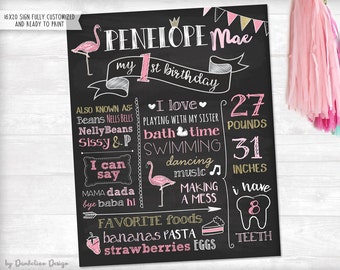 16X20 SIGN FULLY CUSTOMIZED
AND READY TO PRINT
PENELOPE
Mae
my 1st birthday
ALSO KNOWN AS:
Beans NELLS BELLS
NellyBeans
Sissy &P
I can
say
MAMA dada
bye baba hi
I love
PLAYING WITH MY SISTER
bath & time
SWIMMING
dancing
music
MAKING
A MESS
27
POUNDS
31
INCHES
i have
8
TEETH
FAVORITE foods
bananas PASTA
strawberries EGGS
by Dandelion Design